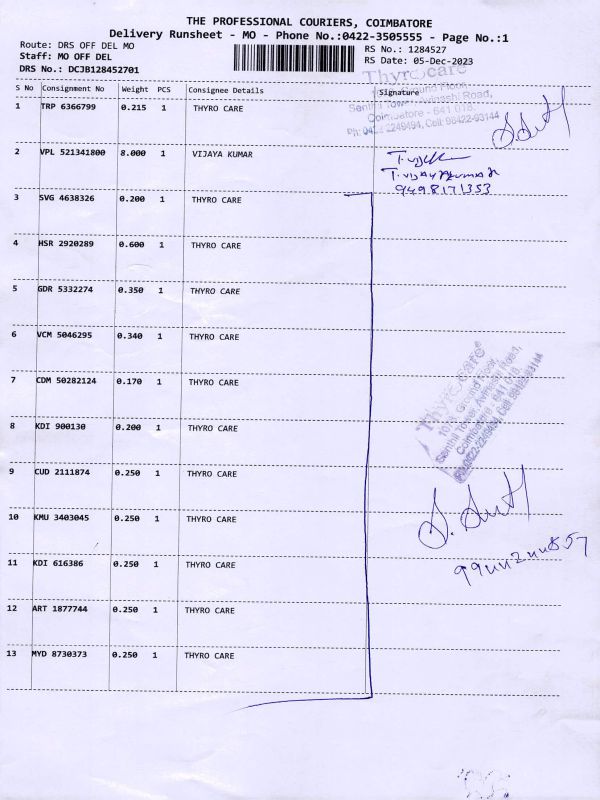 THE PROFESSIONAL COURIERS, COIMBATORE
Delivery Runsheet - MO - Phone No.:0422-3505555 - Page No.:1
Route: DRS OFF DEL MO
Staff: MO OFF DEL
DRS No.: DCJB128452701
RS No.: 1284527
RS Date: 05-Dec-2023
S No Consignment No Weight PCS Consignee Details Signature
1 TRP 6366799 0.215 1 THYRO CARE
Thyrocare
Ground Floor,
Senthil Tower, Avinashi Road,
Coimbatore - 641 018.
Ph: 0422 2249494, Cell: 98422-93144
2 VPL 521341800 8.000 1 VIJAYA KUMAR
T. VIJAYAKUMAR
9498171353
3 SVG 4638326 0.200 1 THYRO CARE
4 HSR 2920289 0.600 1 THYRO CARE
5 GDR 5332274 0.350 1 THYRO CARE
6 VCM 5046295 0.340 1 THYRO CARE
7 CDM 50282124 0.170 1 THYRO CARE
Thyrocare
Ground Floor,
Senthil Tower, Avinashi Road,
Coimbatore - 641 018.
Ph:0422-2249494, Cell: 98422-93144
8 KDI 900130 0.200 1 THYRO CARE
9 CUD 2111874 0.250 1 THYRO CARE
10 KMU 3403045 0.250 1 THYRO CARE
11 KDI 616386 0.250 1 THYRO CARE
12 ART 1877744 0.250 1 THYRO CARE
13 MYD 8730373 0.250 1 THYRO CARE